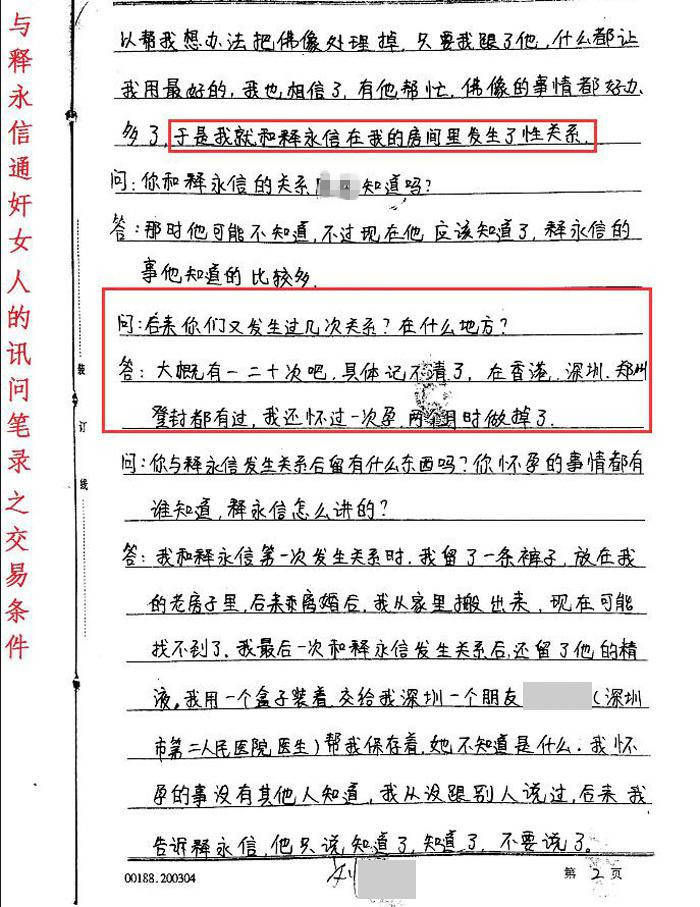 与释永信通奸女人的讯问笔录之交易条件
以帮我想办法把佛像处理掉,只要我跟了他,什么都让
我用最好的,我也相信了,有他帮忙,佛像的事情都好办
多了,于是我就和释永信在我的房间里发生了性关系.
问:你和释永信的关系 知道吗?
答:那时他可能不知道,不过现在他应该知道了,释永信的
事他知道的比较多.
问:后来你们又发生过几次关系?在什么地方?
答:大概有一二十次吧,具体记不清了,在香港.深圳.郑州
登封都有过,我还怀过一次孕,两个月时做掉了.
问:你与释永信发生关系后留有什么东西吗?你怀孕的事情都有
谁知道,释永信怎么讲的?
答:我和释永信第一次发生关系时,我留了一条裤子,放在我
的老房子里,后来离婚后,我从家里搬出来,现在可能
找不到了.我最后一次和释永信发生关系后,还留了他的精
液,我用一个盒子装着交给我深圳一个朋友 (深圳
市第二人民医院医生)帮我保存着,她不知道是什么.我怀
孕的事没有其他人知道,我从没跟别人说过,后来我
告诉释永信,他只说知道了,知道了,不要说了。
装
订
线
00188.200304
第 2 页